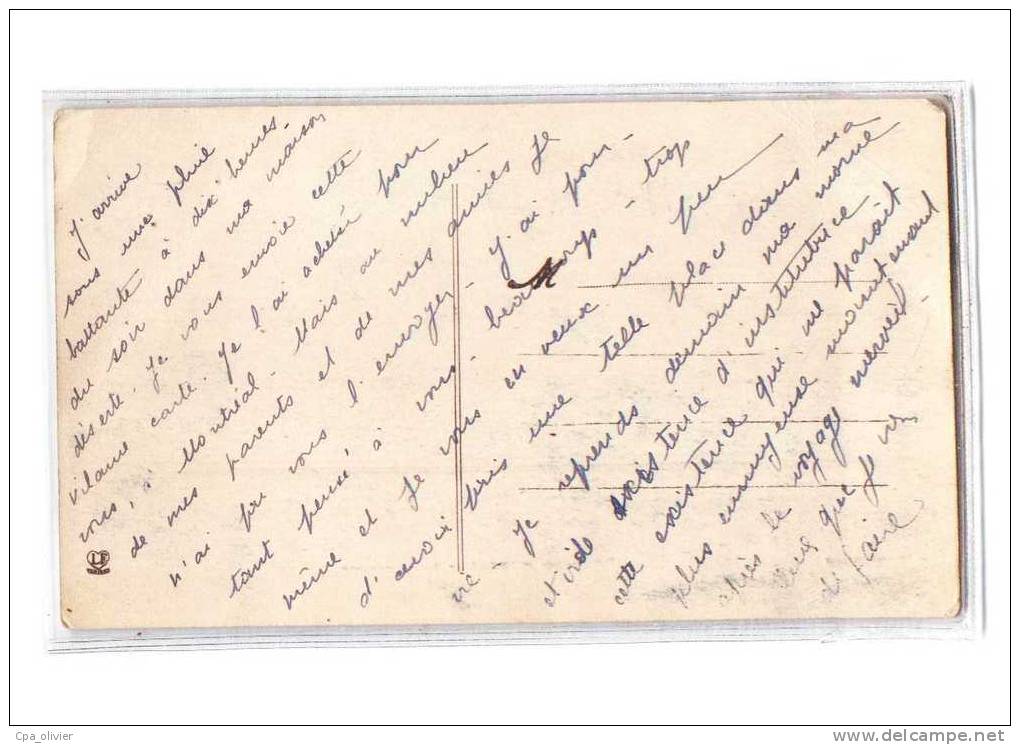 J'arrive
sous une pluie
battante à dix heures
du soir dans ma maison
déserte. Je vous envoie cette
vilaine carte. Je l'ai achetée pour
vous, à Montréal. Mais au milieu
de mes parents et de mes amies je
n'ai pu vous l'envoyer. J'ai pour-
tant pensé, à vous beaucoup - trop
même et je vous en veux un peu
d'avoir pris une telle place dans ma
vie Je reprends demain ma morne
et vide existence d'institutrice
cette existence qui me parait
plus ennyeuse maintenant
après le voyage merveil-
leux que je viens
de faire
LF
Cpa_olivier
www.delcampe.net